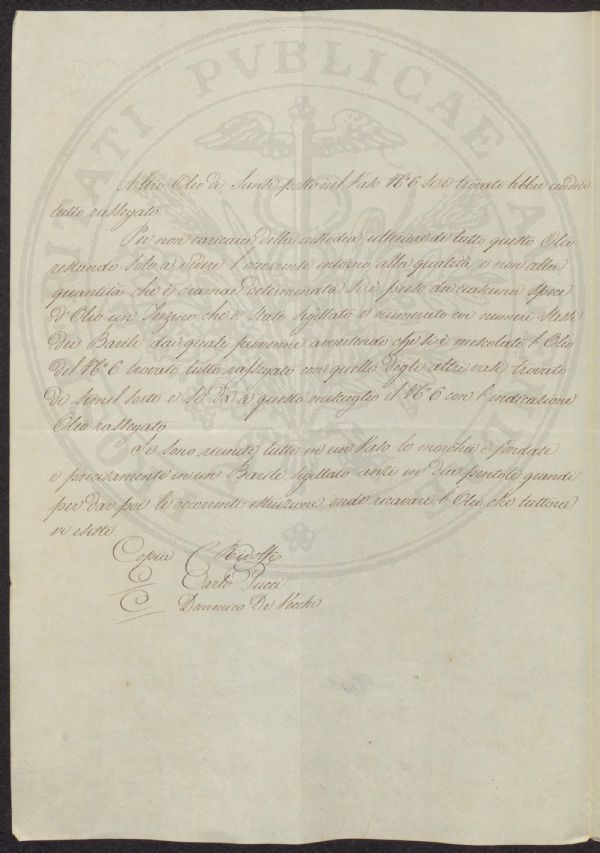 PROSPERITATI PVBLICAE AVGENDAE
Altro Olio di Sansa posto nel Vaso N.º 6 si è trovato libbre undici
tutto rassegato
Per non caricarsi della custodia ulteriore di tutto questo Olio
restando solo a vedere l'occorrente intorno alla qualità e non alla
quantità che è oramai determinata si è preso da ciascuna specie
d'Olio un Terzino che è stato sigillato e numerato coi numeri stessi
dei Barili dai quali provenne avvertendo che si è mescolato l'Olio
del N.º 6 trovato tutto rassegato con quello degli altri vasi trovato
di simil sorte e si dà a questo miscuglio il N.º 6 con l'indicazione
Olio rassegato.
Si sono riunite tutte in un Vaso le morchie e fondate
e precisamente in un Barile sigillato anzi in due pentole grandi
per dar poi le occorrenti istruzioni onde ricavare l'Olio che tuttora
vi esiste.
Copia C. Ridolfi
C. Carlo Pucci
C. Domenico De Vecchi